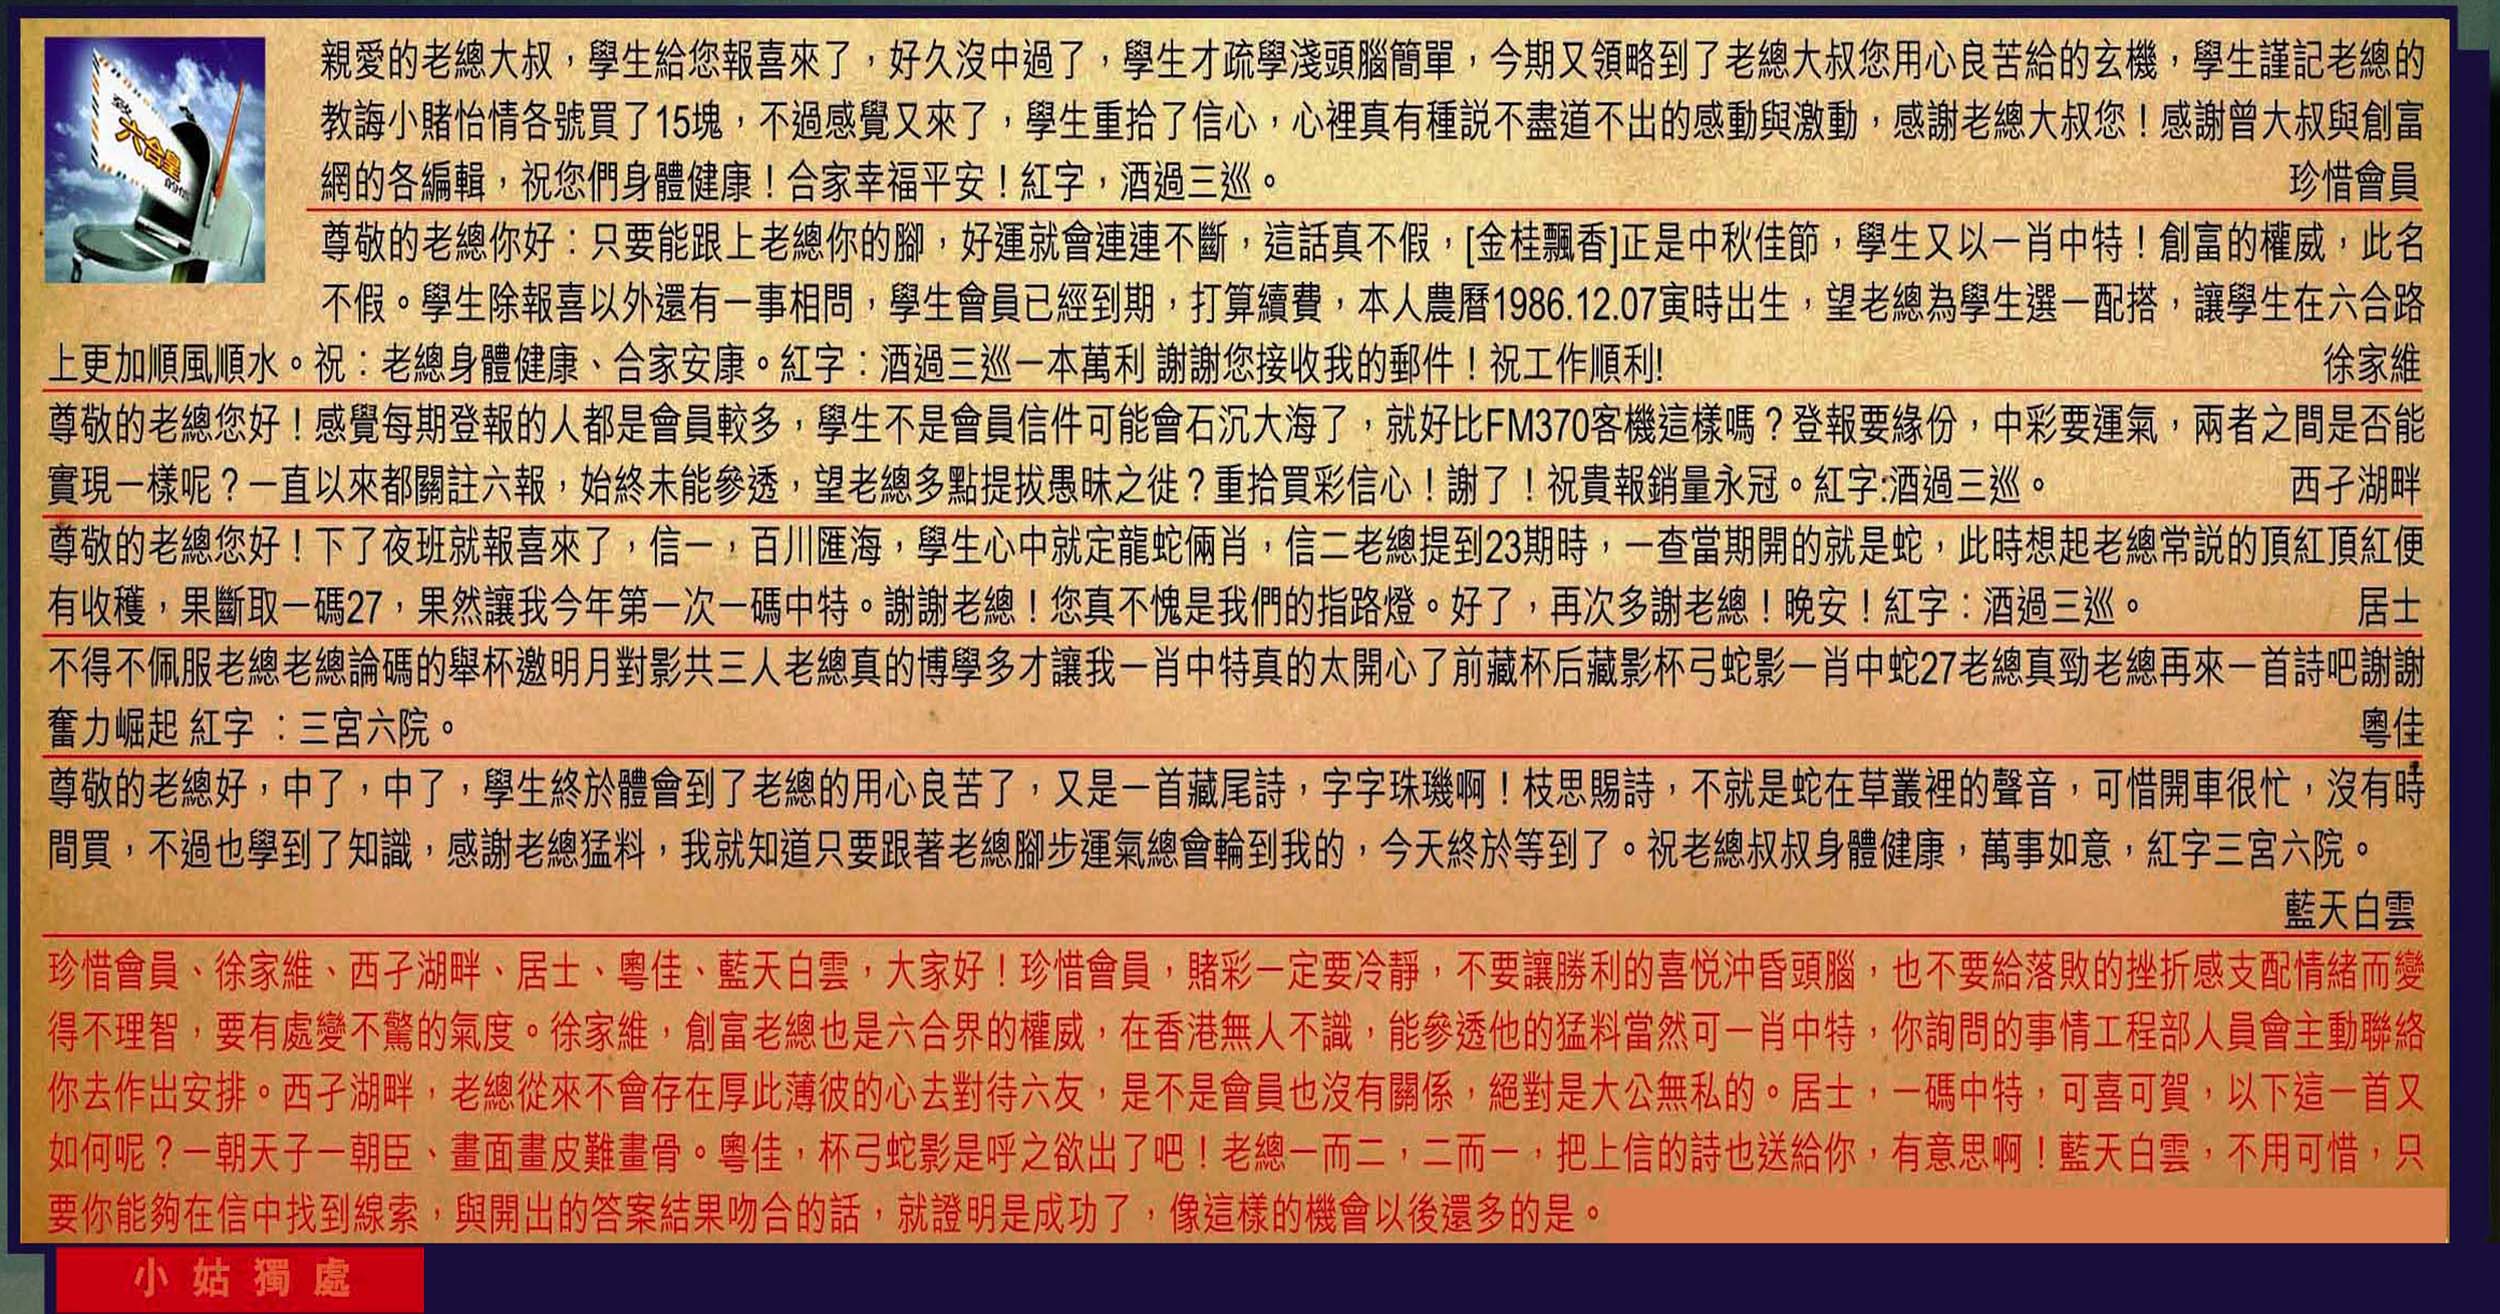 致
六合皇
的信
親愛的老總大叔，學生給您報喜來了，好久沒中過了，學生才疏學淺頭腦簡單，今期又領略到了老總大叔您用心良苦給的玄機，學生謹記老總的
教誨小賭怡情各號買了15塊，不過感覺又來了，學生重拾了信心，心裡真有種説不盡道不出的感動與激動，感謝老總大叔您！感謝曾大叔與創富
網的各編輯，祝您們身體健康！合家幸福平安！紅字，酒過三巡。 珍惜會員
尊敬的老總你好：只要能跟上老總你的腳，好運就會連連不斷，這話真不假，[金桂飄香]正是中秋佳節，學生又以一肖中特！創富的權威，此名
不假。學生除報喜以外還有一事相問，學生會員已經到期，打算續費，本人農曆1986.12.07寅時出生，望老總為學生選一配搭，讓學生在六合路
上更加順風順水。祝：老總身體健康、合家安康。紅字：酒過三巡一本萬利 謝謝您接收我的郵件！祝工作順利! 徐家維
尊敬的老總您好！感覺每期登報的人都是會員較多，學生不是會員信件可能會石沉大海了，就好比FM370客機這樣嗎？登報要緣份，中彩要運氣，兩者之間是否能
實現一樣呢？一直以來都關註六報，始終未能參透，望老總多點提拔愚昧之徙？重拾買彩信心！謝了！祝貴報銷量永冠。紅字:酒過三巡。 西子湖畔
尊敬的老總您好！下了夜班就報喜來了，信一，百川匯海，學生心中就定龍蛇倆肖，信二老總提到23期時，一查當期開的就是蛇，此時想起老總常説的頂紅頂紅便
有收穫，果斷取一碼27，果然讓我今年第一次一碼中特。謝謝老總！您真不愧是我們的指路燈。好了，再次多謝老總！晚安！紅字：酒過三巡。 居士
不得不佩服老總老總論碼的舉杯邀明月對影共三人老總真的博學多才讓我一肖中特真的太開心了前藏杯后藏影杯弓蛇影一肖中蛇27老總真勁老總再來一首詩吧謝謝
奮力崛起 紅字 ：三宮六院。 粵佳
尊敬的老總好，中了，中了，學生終於體會到了老總的用心良苦了，又是一首藏尾詩，字字珠璣啊！枝思賜詩，不就是蛇在草叢裡的聲音，可惜開車很忙，沒有時
間買，不過也學到了知識，感謝老總猛料，我就知道只要跟著老總腳步運氣總會輪到我的，今天終於等到了。祝老總叔叔身體健康，萬事如意，紅字三宮六院。
藍天白雲
珍惜會員、徐家維、西子湖畔、居士、粵佳、藍天白雲，大家好！珍惜會員，賭彩一定要冷靜，不要讓勝利的喜悦沖昏頭腦，也不要給落敗的挫折感支配情緒而變
得不理智，要有處變不驚的氣度。徐家維，創富老總也是六合界的權威，在香港無人不識，能參透他的猛料當然可一肖中特，你詢問的事情工程部人員會主動聯絡
你去作出安排。西子湖畔，老總從來不會存在厚此薄彼的心去對待六友，是不是會員也沒有關係，絕對是大公無私的。居士，一碼中特，可喜可賀，以下這一首又
如何呢？一朝天子一朝臣、畫面畫皮難畫骨。粵佳，杯弓蛇影是呼之欲出了吧！老總一而二，二而一，把上信的詩也送給你，有意思啊！藍天白雲，不用可惜，只
要你能夠在信中找到線索，與開出的答案結果吻合的話，就證明是成功了，像這樣的機會以後還多的是。
小姑獨處